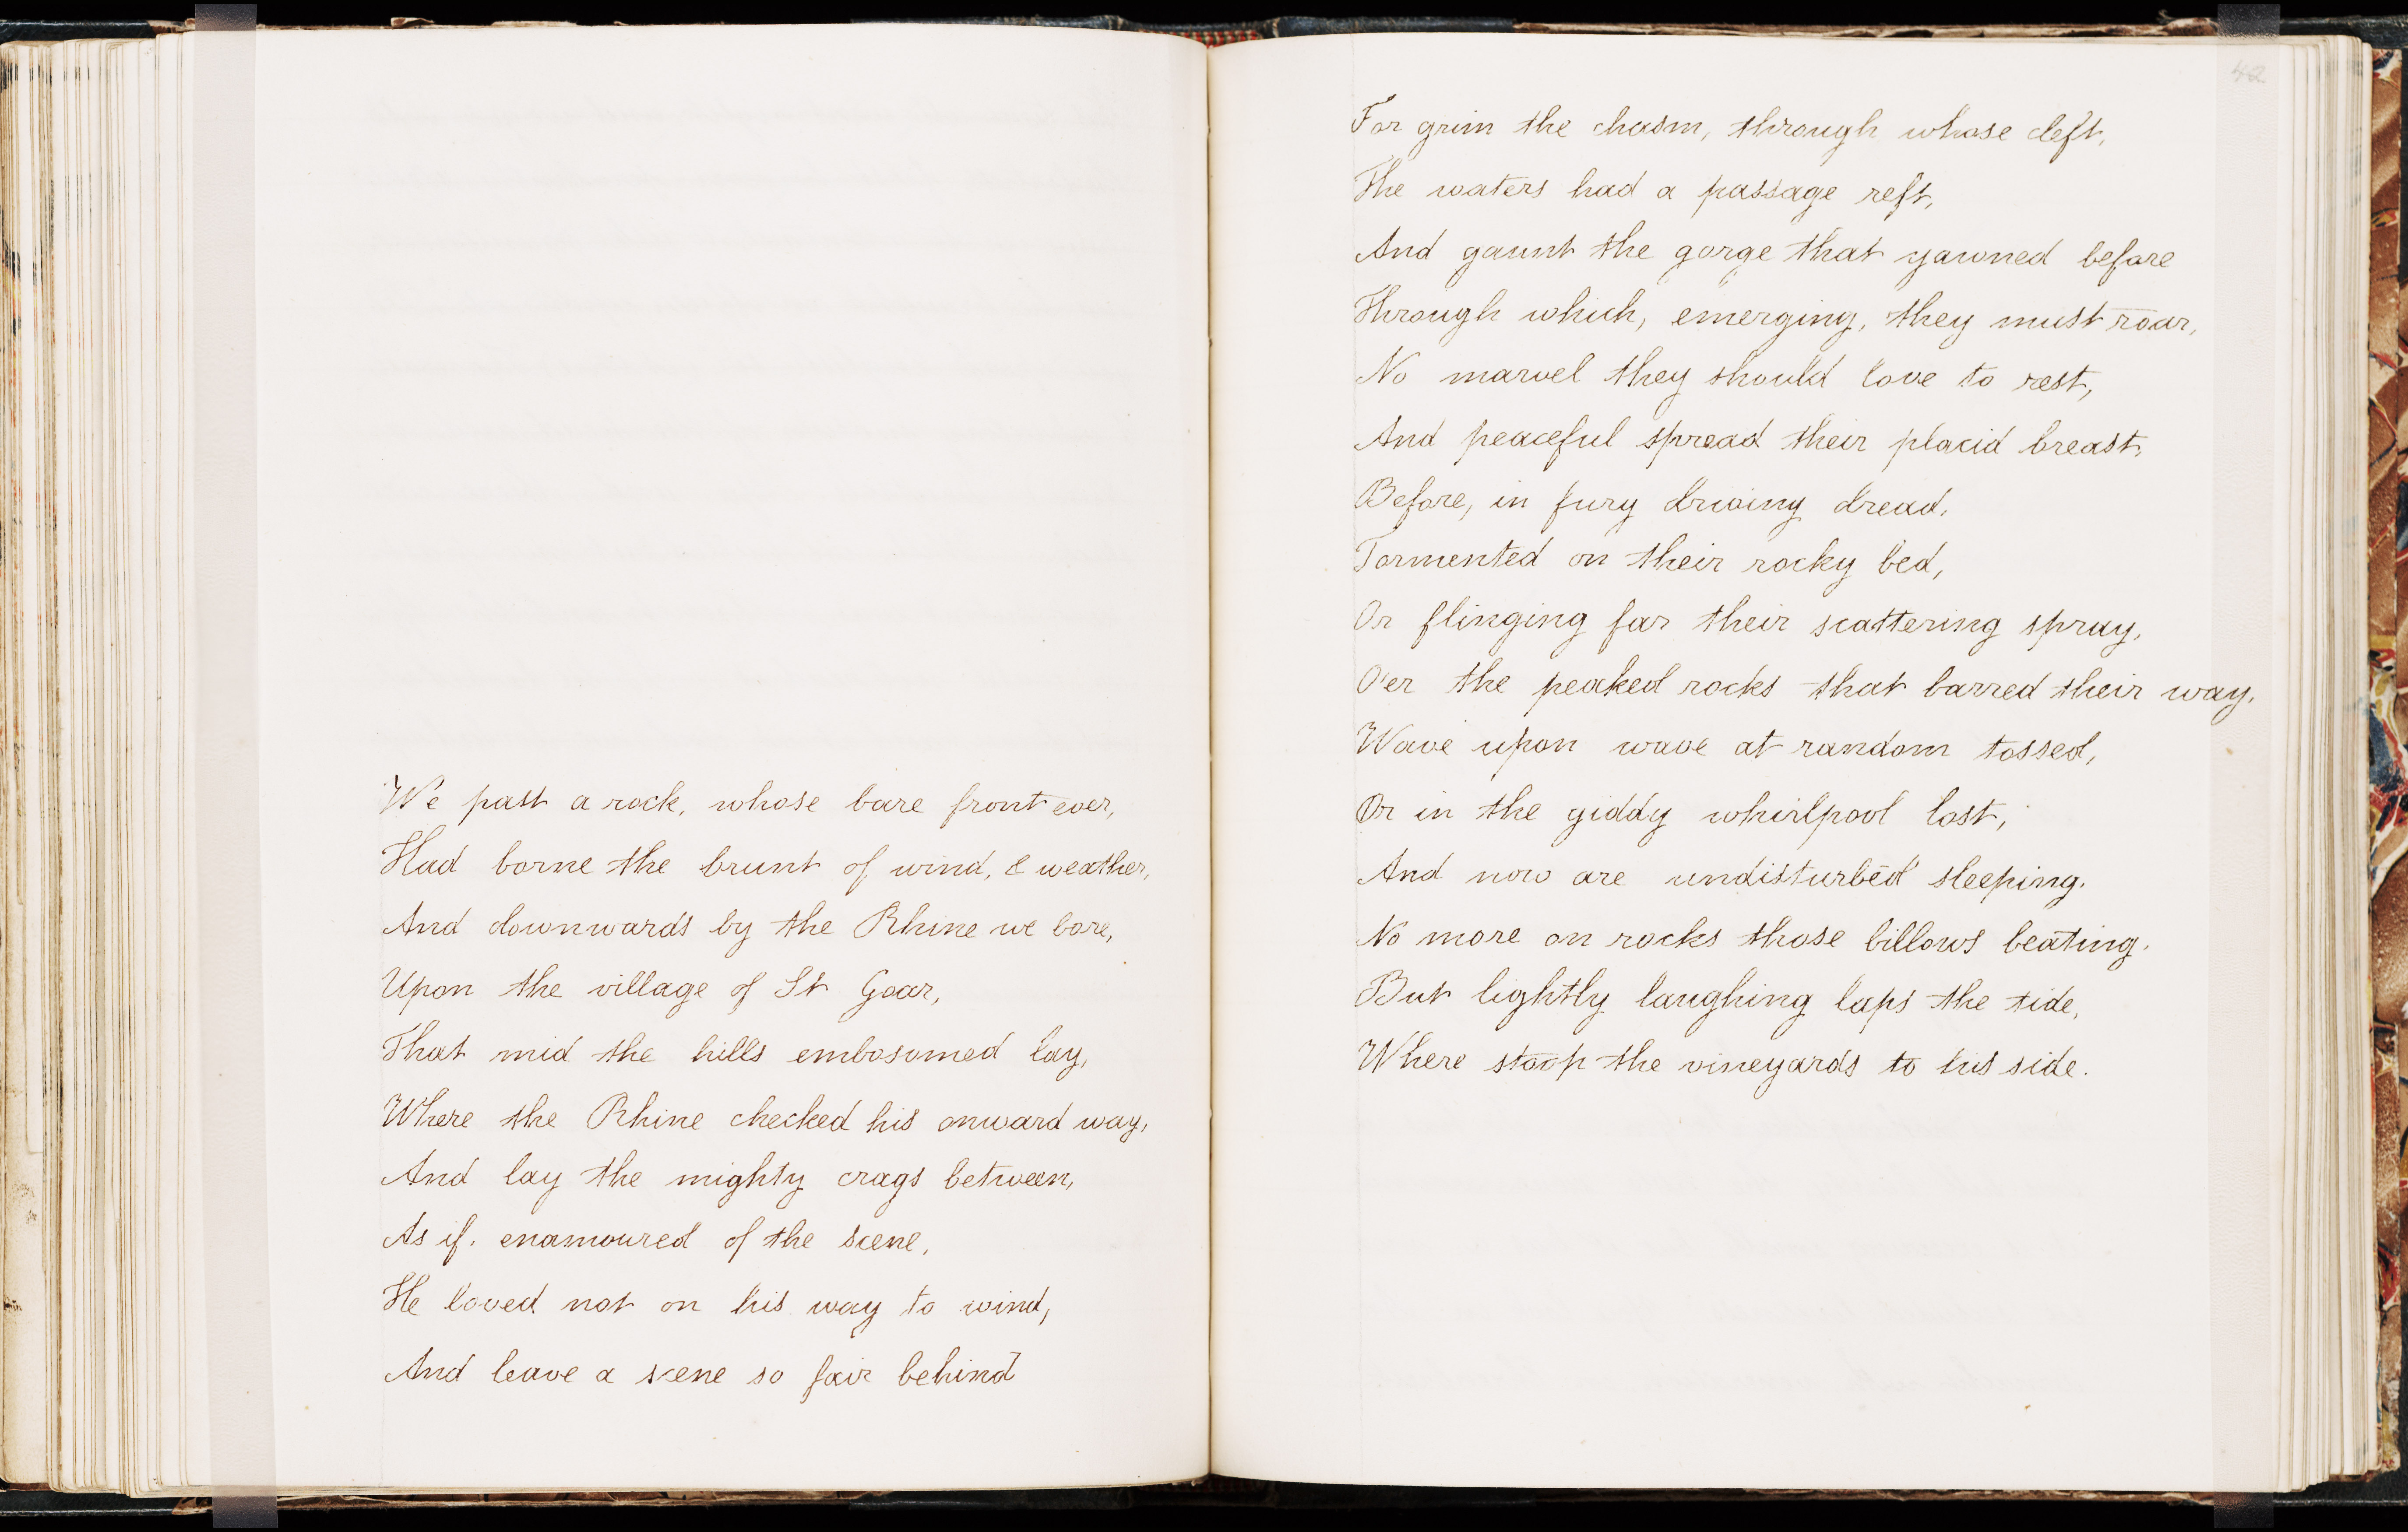 We past a rock, whose bare front ever,
Had borne the brunt of wind, & weather,
And downwards by the Rhine we bore,
Upon the village of St Goar,
That mid the hills embosomed lay,
Where the Rhine checked his onward way,
And lay the mighty crags between,
As if, enamoured of the scene,
He loved not on his way to wind,
And leave a scene so fair behind
42
For grim the chasm, through whose cleft,
The waters had a passage reft,
And gaunt the gorge that yawned before
Through which, emerging, they must roar,
No marvel they should love to rest,
And peaceful spread their placid breast,
Before, in fury driving dread,
Tormented on their rocky bed,
Or flinging far their scattering spray,
O'er the peaked rocks that barred their way,
Wave upon wave at random tossed,
Or in the giddy whirlpool lost,
And now are undisturbēd sleeping.
No more on rocks those billows beating.
But lightly laughing laps the tide,
Where stoop the vineyards to his side.